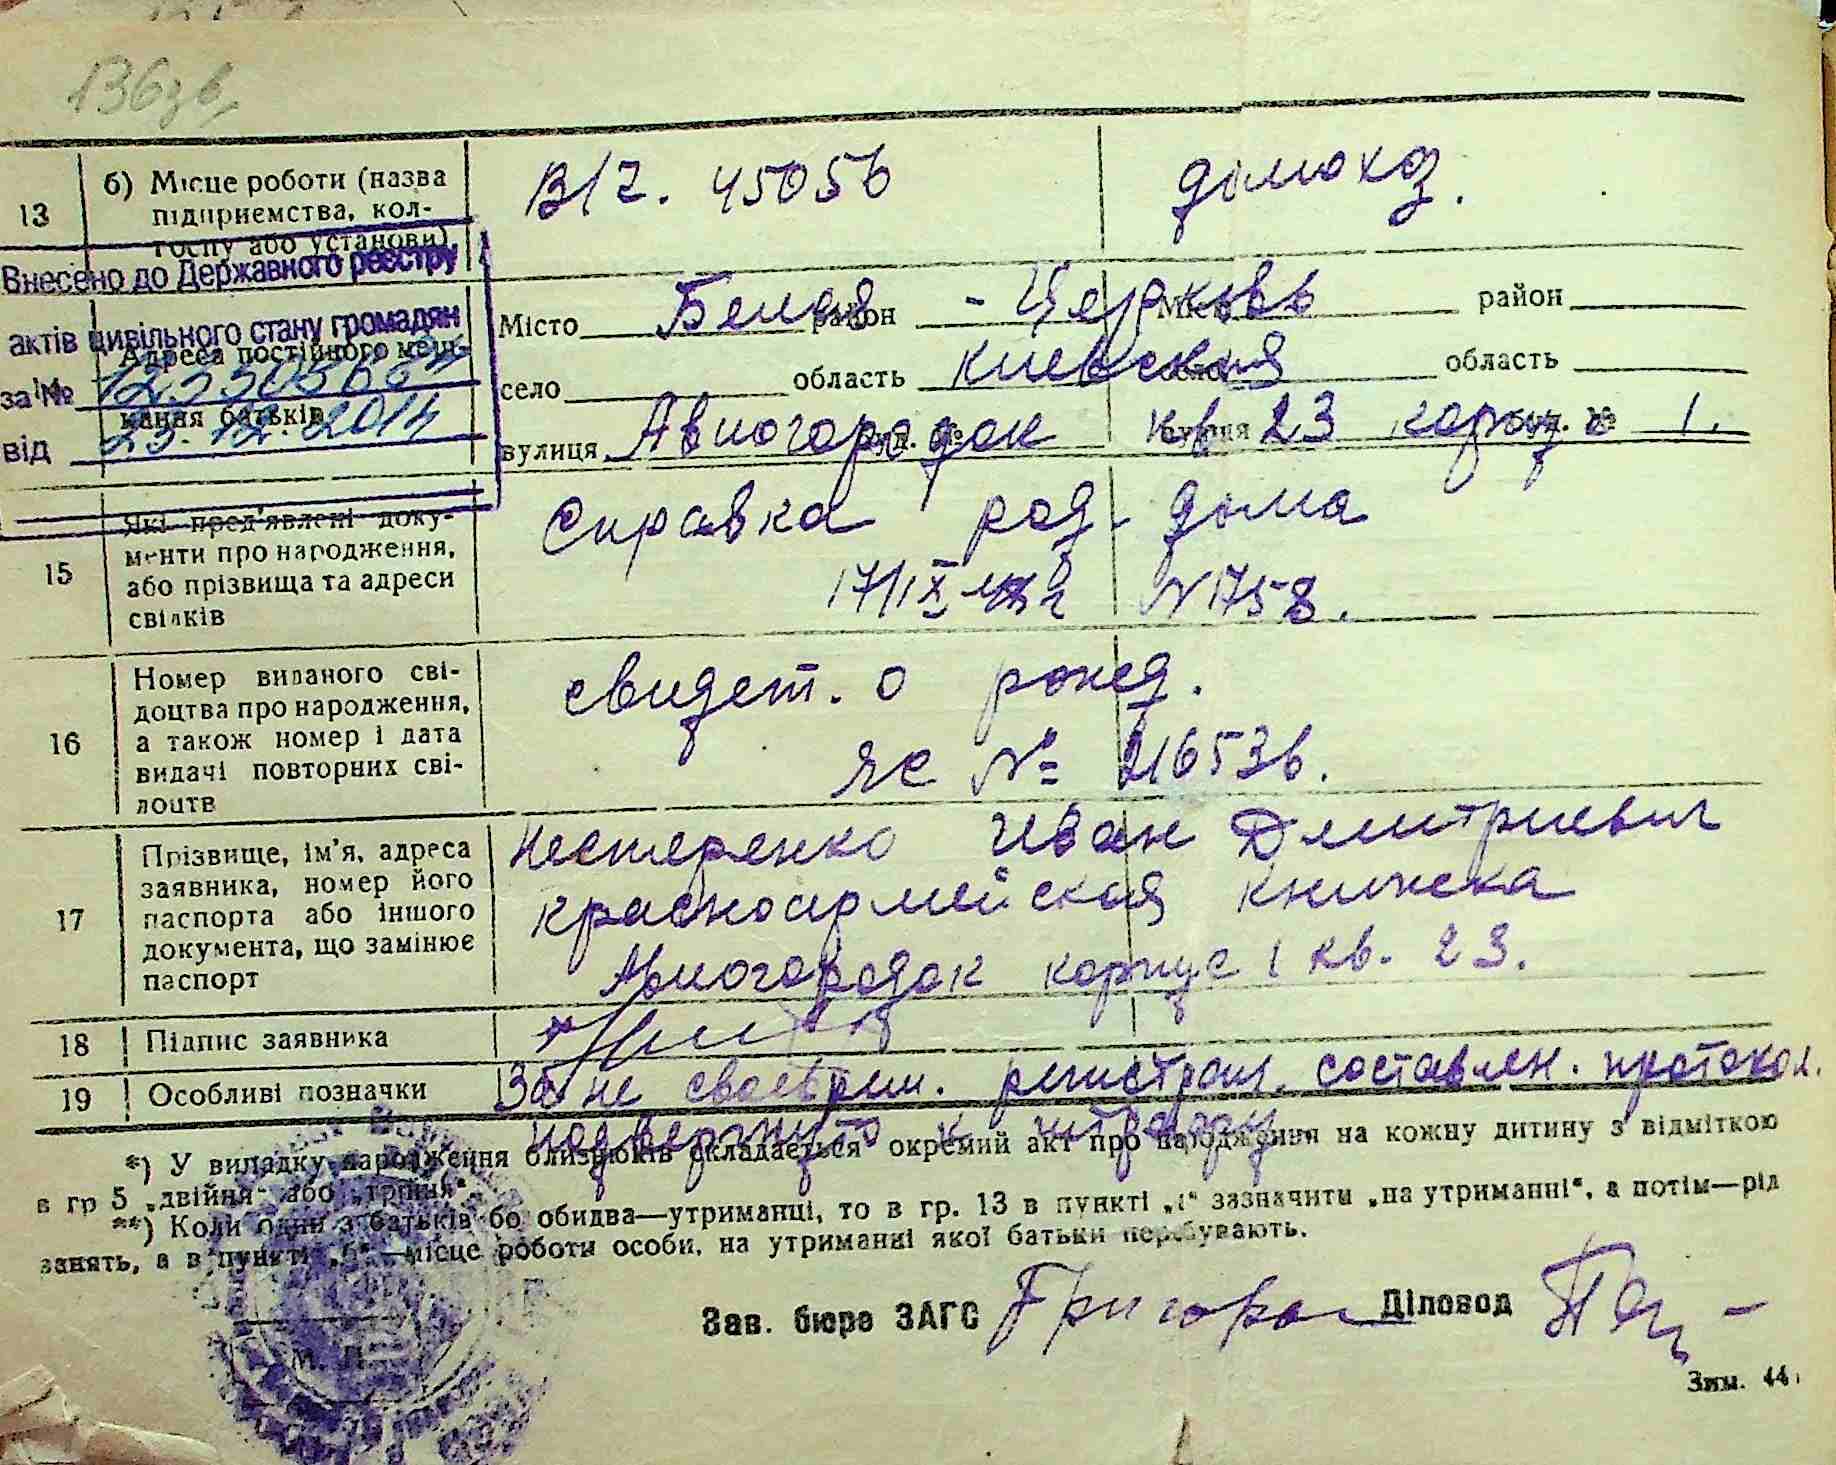 136зв
13
б) Місце роботи (назва
підприємства, кол-
госпу або установи)
В/Ч. 45056
домохоз.
Внесено до Державного реєстру
актів цивільного стану громадян
за №
від 23.12.2014
Адреса постійного меш-
кання батьків
Місто Белая район - Церковь Місто район
село область Киевская село область
вулиця Авиогородок буд. № вулиця кв 23 корпус буд. № 1.
15
Які пред'явлені доку-
менти про народження,
або прізвища та адреси
свідків
Справка род. дома
17/IX № 1758.
16
Номер виданого сві-
доцтва про народження,
а також номер і дата
видачі повторних сві-
доцтв
свидет. о рожд.
ЯС № 216536.
17
Прізвище, ім'я, адреса
заявника, номер його
паспорта або іншого
документа, що замінює
паспорт
Нестеренко Иван Дмитриевич
красноармейская книжка
Авиогородок корпус 1 кв. 23.
18 Підпис заявника
19 Особливі позначки За не своеврем. регистрац. составлен. протокол.
подвергнуто к штрафу
*) У випадку народження близнюків складається окремий акт про народження на кожну дитину з відміткою
в гр 5 „двійня“ або „трійня“.
**) Коли один з батьків бо обидва—утриманці, то в гр. 13 в пункті „а“ зазначити „на утриманні“, а потім—рід
занять, а в пункті „б“—місце роботи особи, на утриманні якої батьки перебувають.
Зав. бюро ЗАГС Діловод
М. П.
Зам. 44